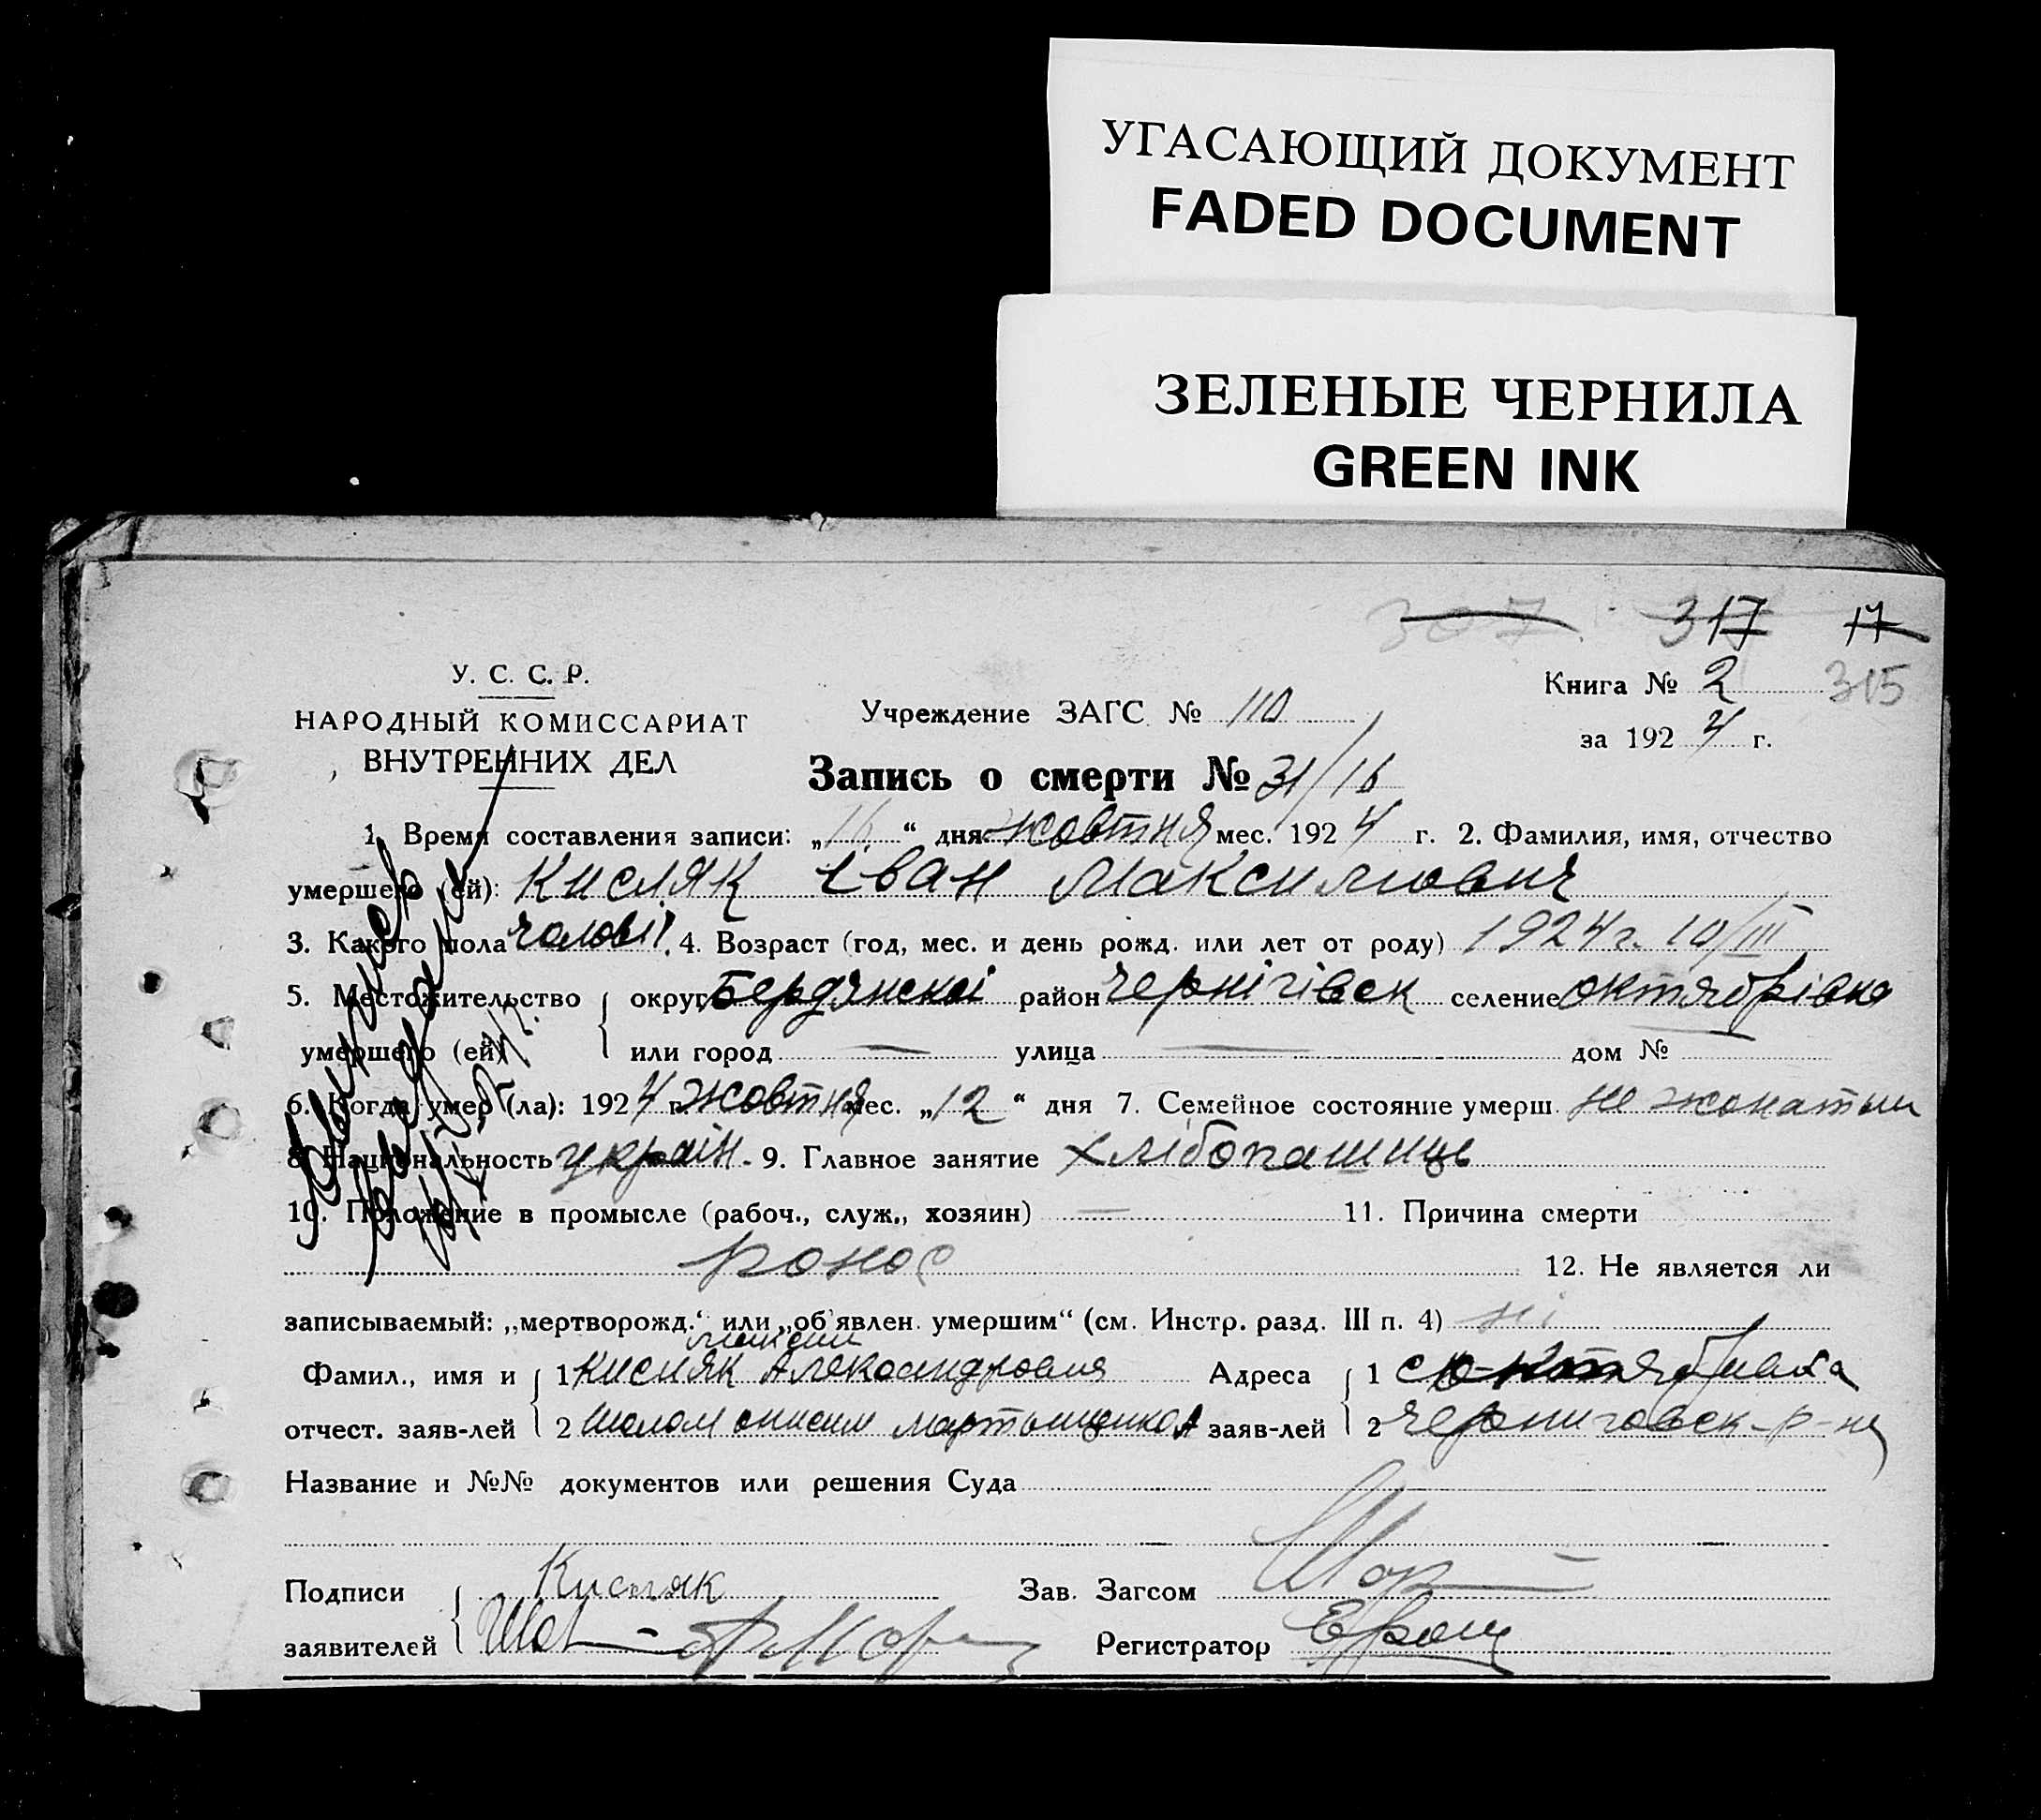 УГАСАЮЩИЙ ДОКУМЕНТ
FADED DOCUMENT
ЗЕЛЕНЫЕ ЧЕРНИЛА
GREEN INK
307 317 17
У. С. С. Р.
НАРОДНЫЙ КОМИССАРИАТ
ВНУТРЕННИХ ДЕЛ
Учреждение ЗАГС № 110
Книга № 2 315
за 1924 г.
Запись о смерти № 31/16
1. Время составления записи: „16“ дня жовтня мес. 1924 г. 2. Фамилия, имя, отчество
умершего (ей): Кисляк Іван Максимович
3. Какого пола чоловіч. 4. Возраст (год, мес. и день рожд. или лет от роду) 1924 г. 10/III
5. Местожительство округ Бердянскоі район Чернігівск селение Октябрівка
умершего (ей) или город — улица — дом №
6. Когда умер (ла): 1924 г. жовтня мес. „12“ дня 7. Семейное состояние умерш. не жонатый
8. Национальность украін. 9. Главное занятие хлібопашиць
10. Положение в промысле (рабоч., служ., хозяин) — 11. Причина смерти
понос 12. Не является ли
записываемый: „мертворожд.“ или „об'явлен. умершим“ (см. Инстр. разд. III п. 4) ні
Фамил., имя и 1 Кисляк Адреса 1 с Октябрівка
отчест. заяв-лей 2 заяв-лей 2 Черниговск-р-на
Название и №№ документов или решения Суда
Подписи Кисляк Зав. Загсом
заявителей Регистратор